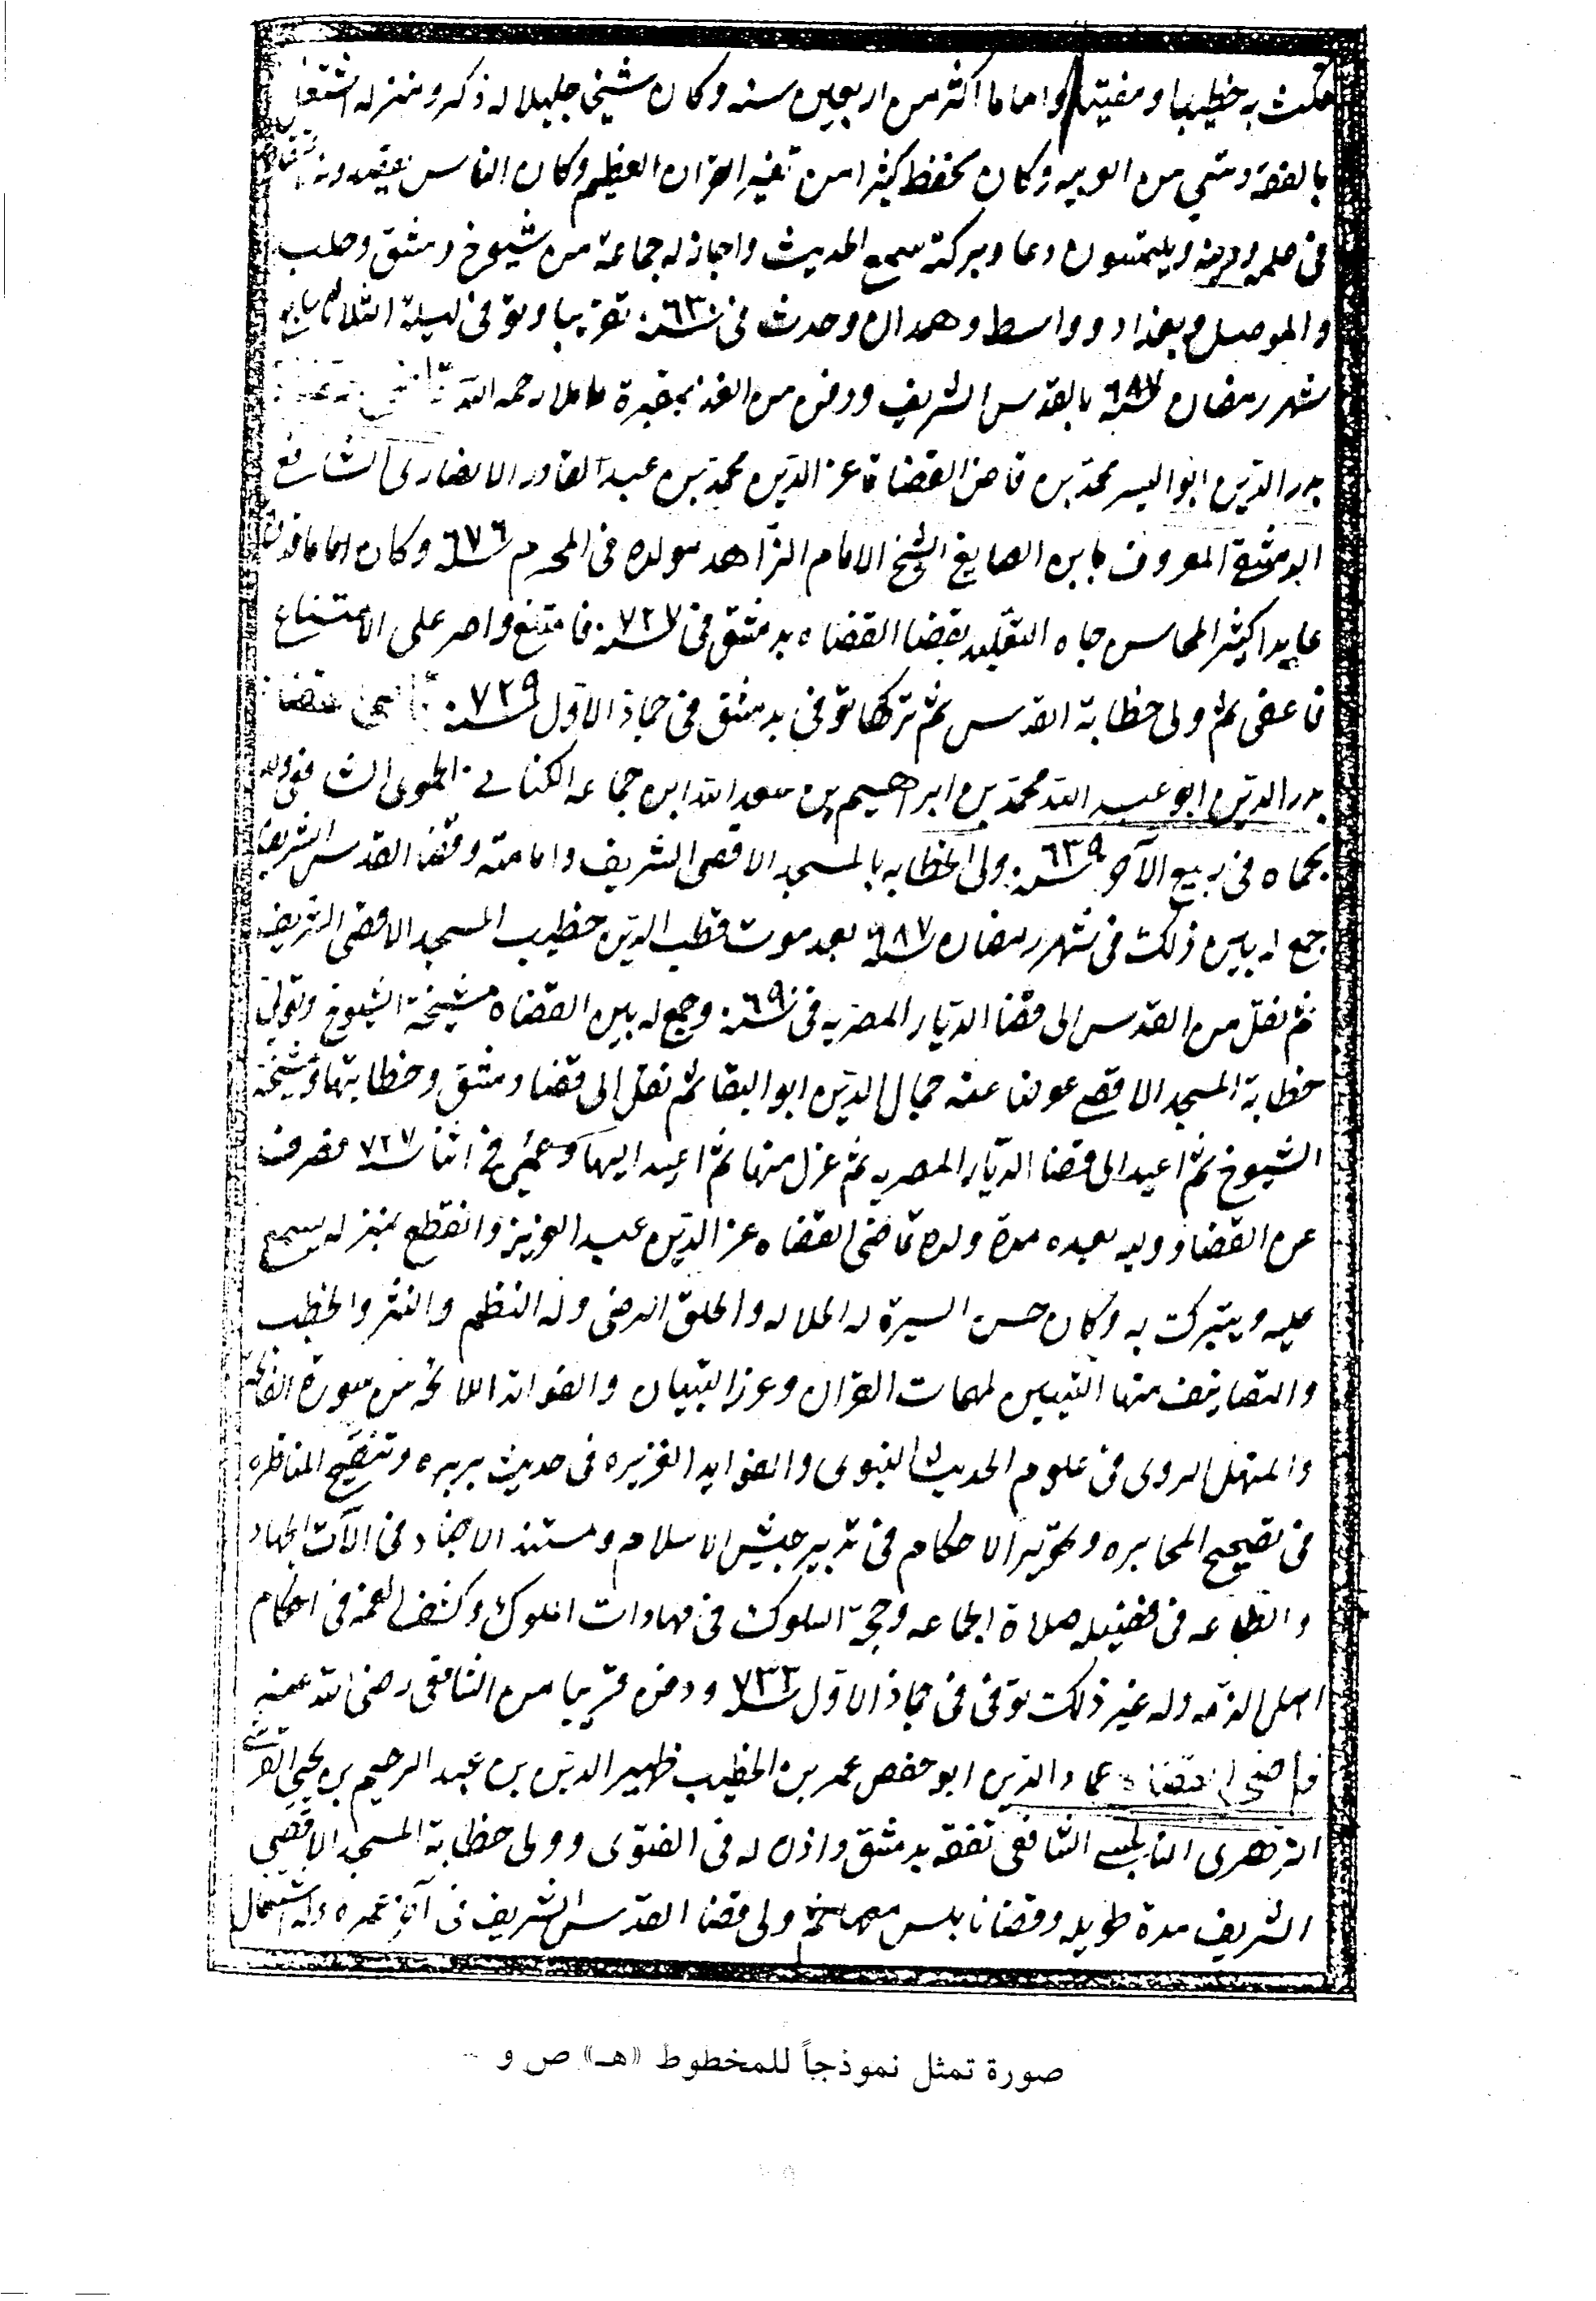 مكث به خطيبا ومفتيا واماما اكثر من اربعين سنه وكان شيخا جليلا له ذكر ومنزله اشتغل
بالفقه وشي من العربيه وكان يحفظ كثيرا من تفسير القران العظيم وكان الناس يعتقدونه
فى علمه ودينه ويلتمسون دعاه وبركته سمع الحديث واجاز له جماعة من شيوخ دمشق وحلب
والموصل وبغداد وواسط وهمدان وحدث فى سنة ٦٣٠ تقريبا وتوفى ليلة الثلاثا سابع
شهر رمضان سنة ٦٨٧ بالقدس الشريف ودفن من الغد بمقبرة ماملا رحمه الله
بدر الدين ابو اليسر محمد بن قاضى القضاة عز الدين محمد بن عبد القادر الانصارى الشافعى
الدمشقى المعروف بابن الصايغ الشيخ الامام الزاهد مولده فى المحرم سنة ٦٧٦ وكان اماما
عابدا كثير المحاسن جاه التقليد بقضا القضاه بدمشق فى سنة ٧٢٧ فامتنع واصر على الامتناع
فاعفى ثم ولى خطابة القدس ثم تركها توفى بدمشق فى جماذ الاول سنة ٧٢٩ قاضى القضاة
بدر الدين ابو عبد الله محمد بن ابراهيم بن سعد الله ابن جماعه الكنانى الحموى الشافعى ولد
بحماه فى ربيع الآخر سنة ٦٣٩ ولى الخطابه بالمسجد الاقصى الشريف وامامته وقضا القدس الشريف
جمع له بين ذلك فى شهر رمضان سنة ٦٨٧ بعد موت قطب الدين خطيب المسجد الاقصى الشريف
ثم نقل من القدس الى قضا الديار المصريه فى سنة ٦٩٠ وجمع له بين القضاه مشيخة الشيوخ وتولى
خطابة المسجد الاقصى عوضا عنه جمال الدين ابو البقا ثم نقل الى قضا دمشق وخطابتها ومشيخة
الشيوخ ثم اعيد الى قضا الديار المصريه ثم عزل منها ثم اعيد اليها وعمى فى اثنا سنة ٧٢٧ فصرف
عن القضا ووليه بعده مدة ولده قاضى القضاه عز الدين عبد العزيز وانقطع بمنزله يسمع
عليه ويتبرك به وكان حسن السيرة له الجلاله والخلق الرضى وله النظم والنثر والخطب
والتصانيف منها التبيين لمهمات القران وغرر التبيان والفوائد اللائحة من سورة الفاتحة
والمنهل الروى فى علوم الحديث النبوى والفوايد الغزيره فى حديث بريره وتنقيح المناظره
فى تصحيح المخابره وتحرير الاحكام فى تدبير جيش الاسلام ومستند الاجناد فى الآت الجهاد
والطاعه فى فضيله صلاة الجماعه وحجة السلوك فى مهادات الملوك وكشف الغمه فى احكام
اهل الذمه وله غير ذلك توفى فى جماذ الاول سنة ٧٣٣ ودفن قريبا من الشافعى رضى الله عنه
قاضى القضاة عماد الدين ابو حفص عمر بن الخطيب ظهير الدين بن عبد الرحيم بن يحيى القرشى
الزهرى النابلسى الشافعى تفقه بدمشق واذن له فى الفتوى وولى خطابة المسجد الاقصى
الشريف مدة طويله وقضا نابلس معها ثم ولى قضا القدس الشريف فى آخر عمره وله اشتغال
صورة تمثل نموذجاً للمخطوط «هـ» ص و